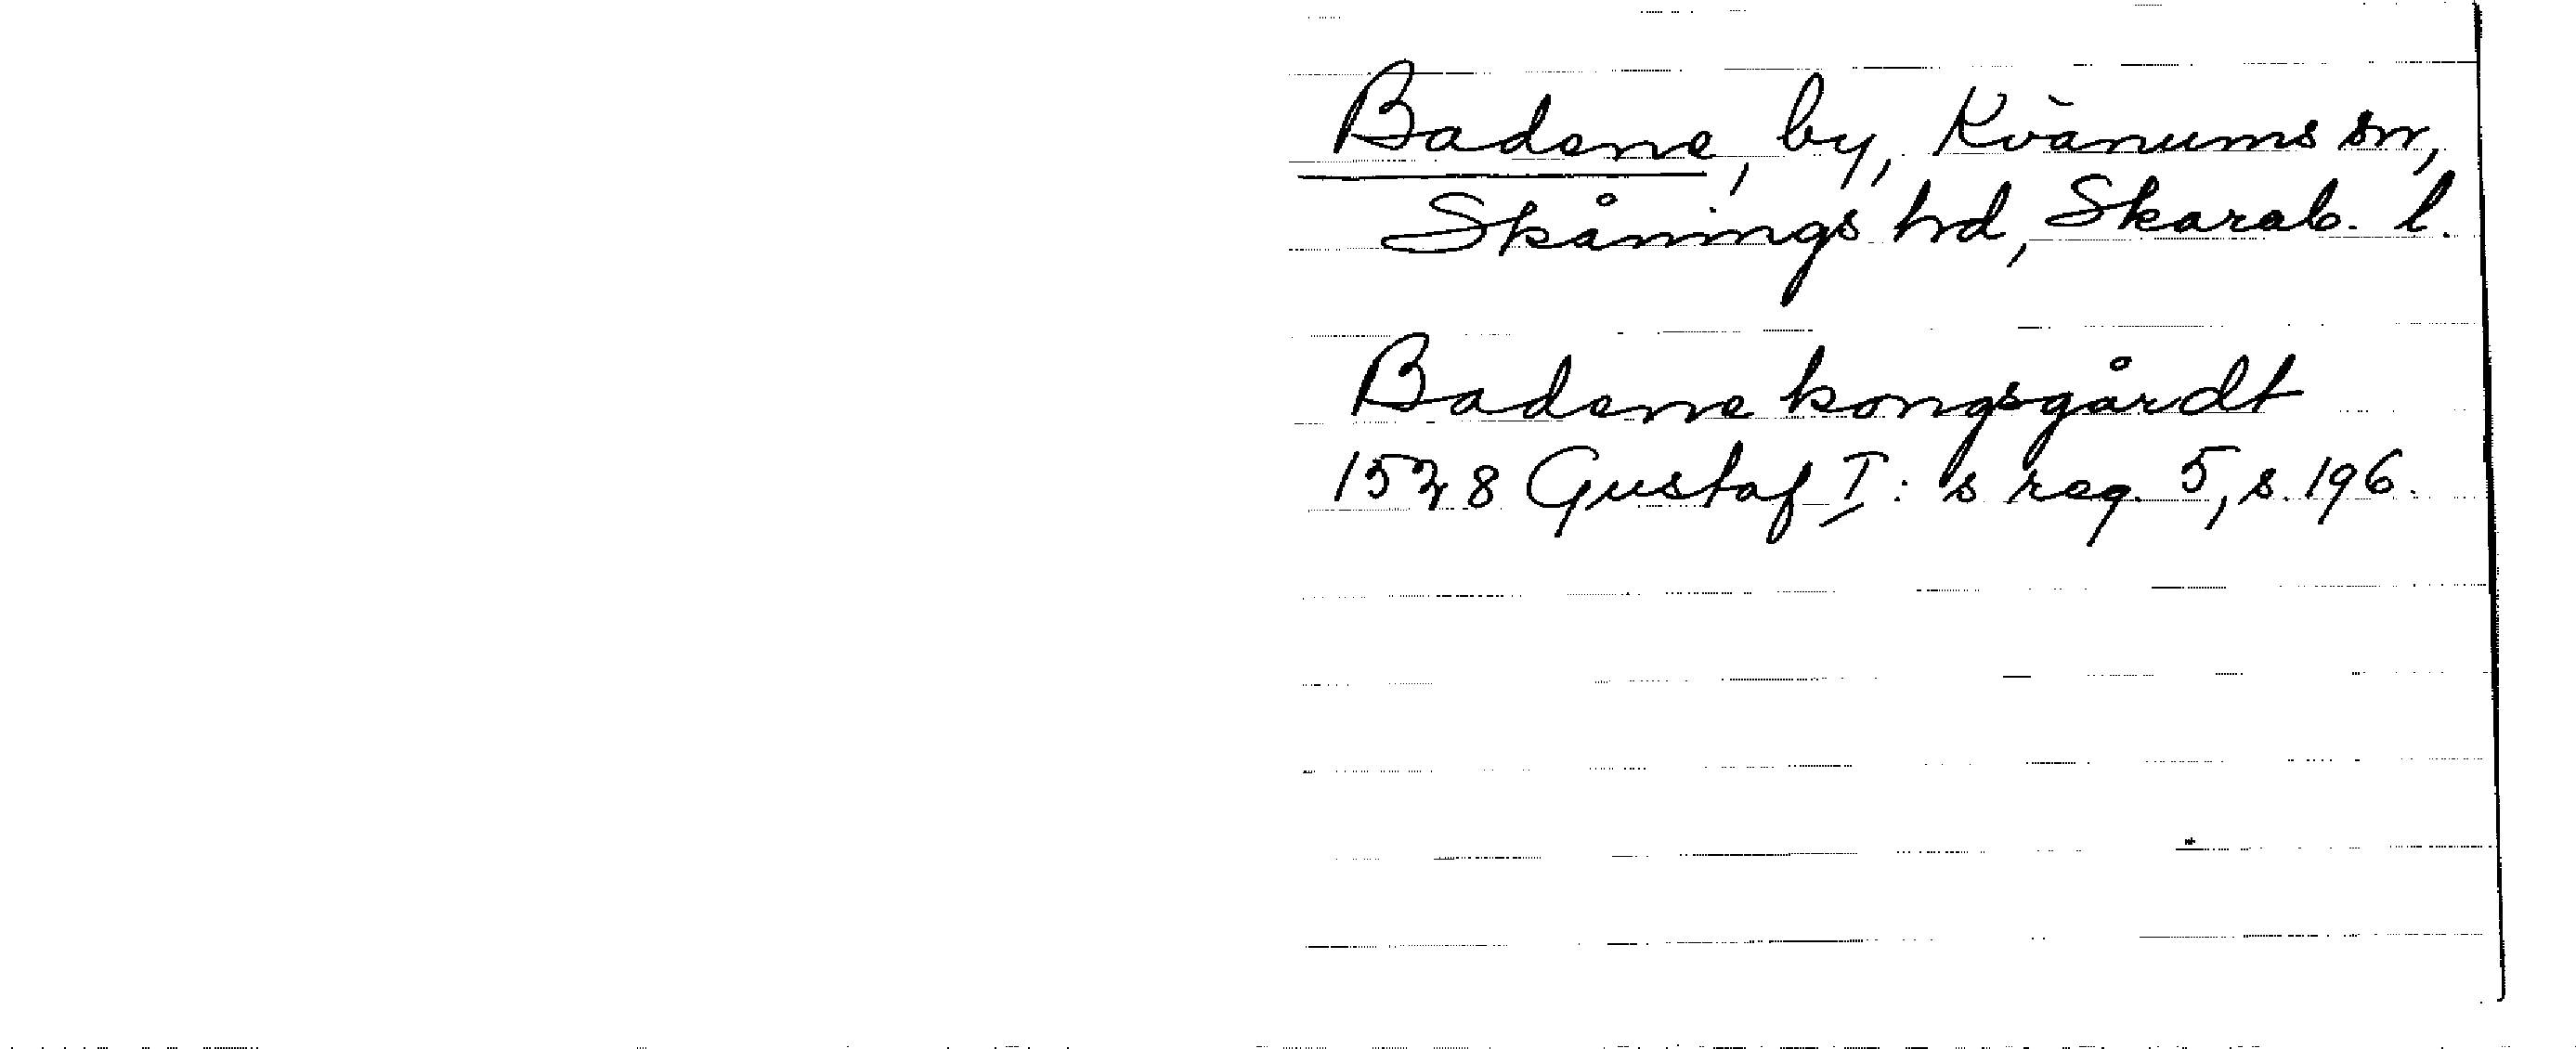 Badene, by, Kvänums sn,
Skånings hd, Skarab. l.
Badene kongsgårdt
1528 Gustaf I:s reg. 5, s. 196.